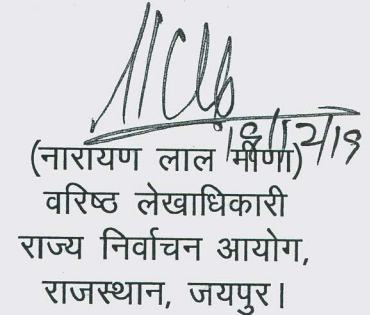 18/12/19
(नारायण लाल मीणा)
वरिष्ठ लेखाधिकारी
राज्य निर्वाचन आयोग,
राजस्थान, जयपुर।